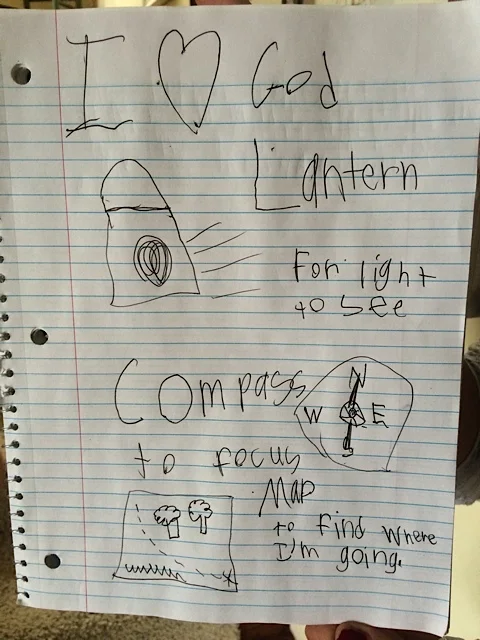 I ♡ God
Lantern
For light
to see
Compass
N
W E
S
to focus
Map
to find where
I'm going.